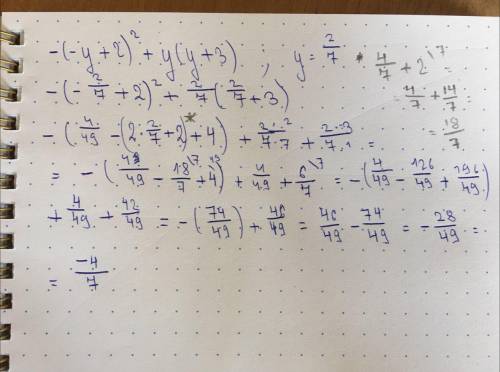 -(-y+2)² + y(y+3) , y = 2/7 * 4/7 + 2\7
-(-2/7+2)² + 2/7(2/7+3) = 4/7 + 14/7 =
-(4/49 -(2·2/7+2)*+4) + 2·2/7·7 + 2·3/7·1 = = 18/7
= -(4/49 - 18\7/7 + 4) + 4/49 + 6\7/7 = -(4/49 - 126/49 + 196/49)
+ 4/49 + 42/49 = -(74/49) + 46/49 = 46/49 - 74/49 = -28/49 =
= -4/7